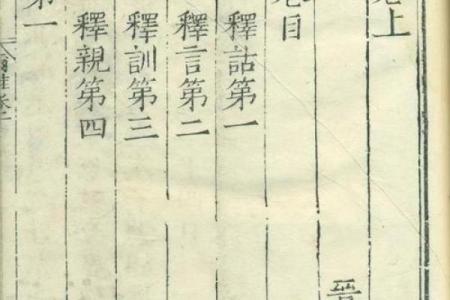 上
目
晉
釋詁第一
釋言第二
釋訓第三
釋親第四
第一
爾雅卷上